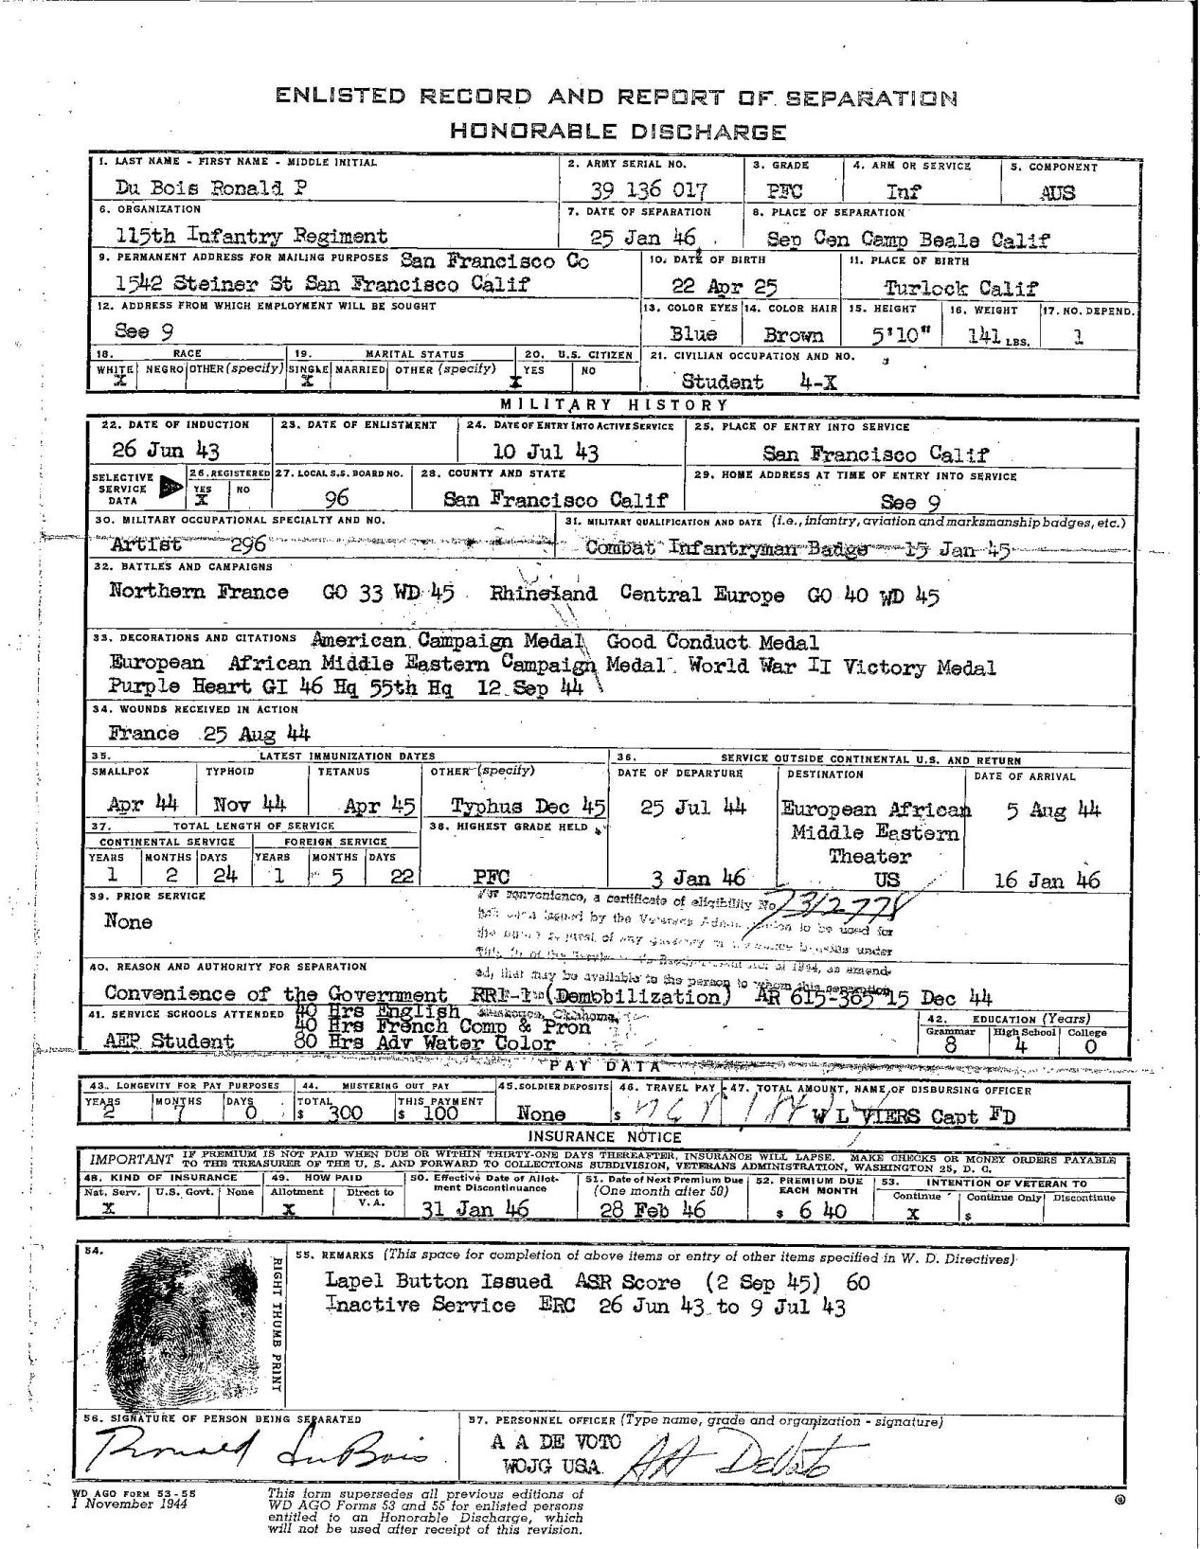 ENLISTED RECORD AND REPORT OF SEPARATION
HONORABLE DISCHARGE
1. LAST NAME - FIRST NAME - MIDDLE INITIAL
Du Bois Ronald P
2. ARMY SERIAL NO.
39 136 017
3. GRADE
PFC
4. ARM OR SERVICE
Inf
5. COMPONENT
AUS
6. ORGANIZATION
115th Infantry Regiment
7. DATE OF SEPARATION
25 Jan 46
8. PLACE OF SEPARATION
Sep Cen Camp Beale Calif
9. PERMANENT ADDRESS FOR MAILING PURPOSES San Francisco Co
1542 Steiner St San Francisco Calif
10. DATE OF BIRTH
22 Apr 25
11. PLACE OF BIRTH
Turlock Calif
12. ADDRESS FROM WHICH EMPLOYMENT WILL BE SOUGHT
See 9
13. COLOR EYES
Blue
14. COLOR HAIR
Brown
15. HEIGHT
5'10"
16. WEIGHT
141 LBS.
17. NO. DEPEND.
1
18. RACE
WHITE NEGRO OTHER (specify)
X
19. MARITAL STATUS
SINGLE MARRIED OTHER (specify)
X
20. U.S. CITIZEN
YES NO
X
21. CIVILIAN OCCUPATION AND NO.
Student 4-X
MILITARY HISTORY
22. DATE OF INDUCTION
26 Jun 43
23. DATE OF ENLISTMENT
24. DATE OF ENTRY INTO ACTIVE SERVICE
10 Jul 43
25. PLACE OF ENTRY INTO SERVICE
San Francisco Calif
SELECTIVE SERVICE DATA
26. REGISTERED
YES NO
X
27. LOCAL S.S. BOARD NO.
96
28. COUNTY AND STATE
San Francisco Calif
29. HOME ADDRESS AT TIME OF ENTRY INTO SERVICE
See 9
30. MILITARY OCCUPATIONAL SPECIALTY AND NO.
Artist 296
31. MILITARY QUALIFICATION AND DATE (i.e., infantry, aviation and marksmanship badges, etc.)
Combat Infantryman Badge 15 Jan 45
32. BATTLES AND CAMPAIGNS
Northern France GO 33 WD 45 Rhineland Central Europe GO 40 WD 45
33. DECORATIONS AND CITATIONS American Campaign Medal Good Conduct Medal
European African Middle Eastern Campaign Medal World War II Victory Medal
Purple Heart GI 46 Hq 55th Hq 12 Sep 44
34. WOUNDS RECEIVED IN ACTION
France 25 Aug 44
35. LATEST IMMUNIZATION DATES
SMALLPOX TYPHOID TETANUS OTHER (specify)
Apr 44 Nov 44 Apr 45 Typhus Dec 45
36. SERVICE OUTSIDE CONTINENTAL U.S. AND RETURN
DATE OF DEPARTURE DESTINATION DATE OF ARRIVAL
25 Jul 44 European African 5 Aug 44
Middle Eastern
Theater
3 Jan 46 US 16 Jan 46
37. TOTAL LENGTH OF SERVICE
CONTINENTAL SERVICE FOREIGN SERVICE
YEARS MONTHS DAYS YEARS MONTHS DAYS
1 2 24 1 5 22
38. HIGHEST GRADE HELD
PFC
39. PRIOR SERVICE
None
For convenience, a certificate of eligibility No 7312778
has been issued by the Veterans to be used for
of any
under
of 1944, as amend-
ed, that may be available to the person to whom this separation
40. REASON AND AUTHORITY FOR SEPARATION
Convenience of the Government RR1-1 (Demobilization) AR 615-365 15 Dec 44
41. SERVICE SCHOOLS ATTENDED 40 Hrs English
40 Hrs French Comp & Pron
AEP Student 80 Hrs Adv Water Color
Muskogee, Oklahoma,
42. EDUCATION (Years)
Grammar High School College
8 4 0
PAY DATA
43. LONGEVITY FOR PAY PURPOSES
YEARS MONTHS DAYS
2 7 0
44. MUSTERING OUT PAY
TOTAL THIS PAYMENT
$ 300 $ 100
45. SOLDIER DEPOSITS
None
46. TRAVEL PAY
$
47. TOTAL AMOUNT, NAME OF DISBURSING OFFICER
W L VIERS Capt FD
INSURANCE NOTICE
IMPORTANT IF PREMIUM IS NOT PAID WHEN DUE OR WITHIN THIRTY-ONE DAYS THEREAFTER, INSURANCE WILL LAPSE. MAKE CHECKS OR MONEY ORDERS PAYABLE
TO THE TREASURER OF THE U. S. AND FORWARD TO COLLECTIONS SUBDIVISION, VETERANS ADMINISTRATION, WASHINGTON 25, D. C.
48. KIND OF INSURANCE
Nat. Serv. U.S. Govt. None
X
49. HOW PAID
Allotment Direct to V.A.
X
50. Effective Date of Allotment Discontinuance
31 Jan 46
51. Date of Next Premium Due (One month after 50)
28 Feb 46
52. PREMIUM DUE EACH MONTH
$ 6 40
53. INTENTION OF VETERAN TO
Continue Continue Only Discontinue
X $
54.
RIGHT THUMB PRINT
55. REMARKS (This space for completion of above items or entry of other items specified in W. D. Directives)
Lapel Button Issued ASR Score (2 Sep 45) 60
Inactive Service ERC 26 Jun 43 to 9 Jul 43
56. SIGNATURE OF PERSON BEING SEPARATED
Ronald DuBois
57. PERSONNEL OFFICER (Type name, grade and organization - signature)
A A DE VOTO
WOJG USA
AA DeVoto
WD AGO FORM 53-55
1 November 1944
This form supersedes all previous editions of
WD AGO Forms 53 and 55 for enlisted persons
entitled to an Honorable Discharge, which
will not be used after receipt of this revision.